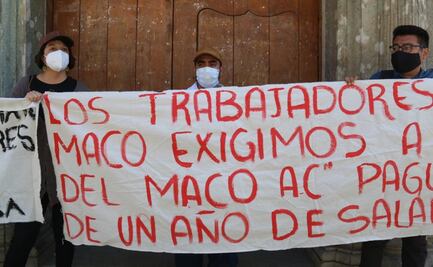 LOS TRABAJADORES
MACO EXIGIMOS A
DEL MACO AC" PAGU
DE UN AÑO DE SALA
RES